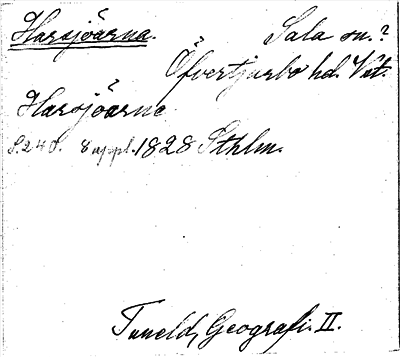 Harsjöarna. Sala sn.?
Öfvertjurbo hd. Vst.
Harsjöarne
S. 240. 8 uppl. 1828 Sthlm.
Tuneld, Geografi. II.